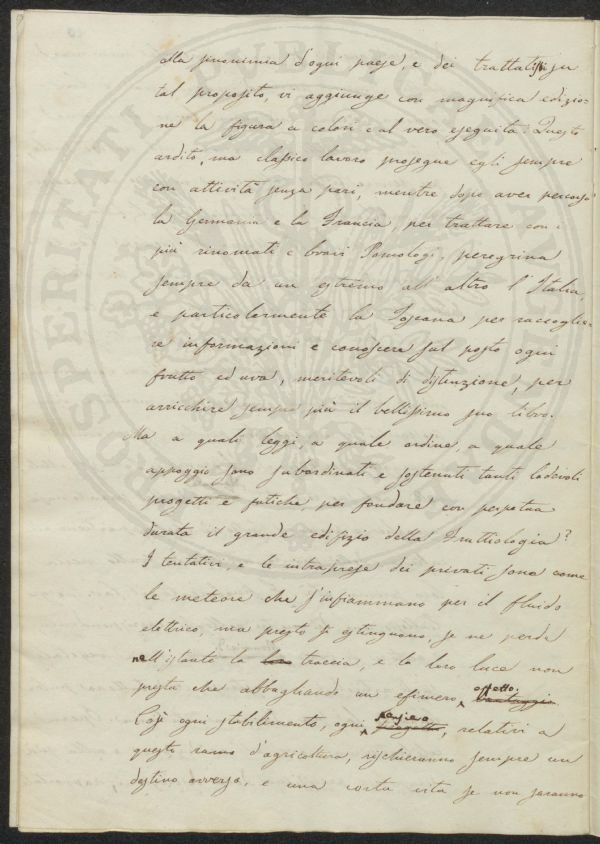 alla pronunia d'ogni paese, e dei trattatisti su
tal proposito, vi aggiunge con magnifica edizio-
ne la figura a colori e al vero eseguita. Questo
ardito, ma classico lavoro prosegue egli sempre
con attività senza pari, mentre dopo aver percorso
la Germania e la Francia, per trattare con i
più rinomati e bravi Pomologi, peregrina
sempre da un estremo all'altro l'Italia,
e particolarmente la Toscana per raccoglie-
re informazioni e conoscere sul posto ogni
frutto ed uva, meritevoli di distinzione, per
arricchire sempre più il bellissimo suo libro.
Ma a quali leggi, a quale ordine, a quale
appoggio sono subordinati e sostenuti tanti lodevoli
progetti e fatiche per fondare con perpetua
durata il grande edifizio della Fruttiologia?
I tentativi, e le intraprese dei privati sono come
le meteore che s'infiammano per il fluido
elettrico, ma presto si estinguono, se ne perde
nell'istante la loro traccia, e la loro luce non
presta che abbagliando un efimero vantaggio effetto.
Così ogni stabilimento, ogni progetto pensiero, relativi a
questo ramo d'agricoltura, rischieranno sempre un
destino avverso, e una corta vita se non saranno
PUBLICAE
PROSPERITATI